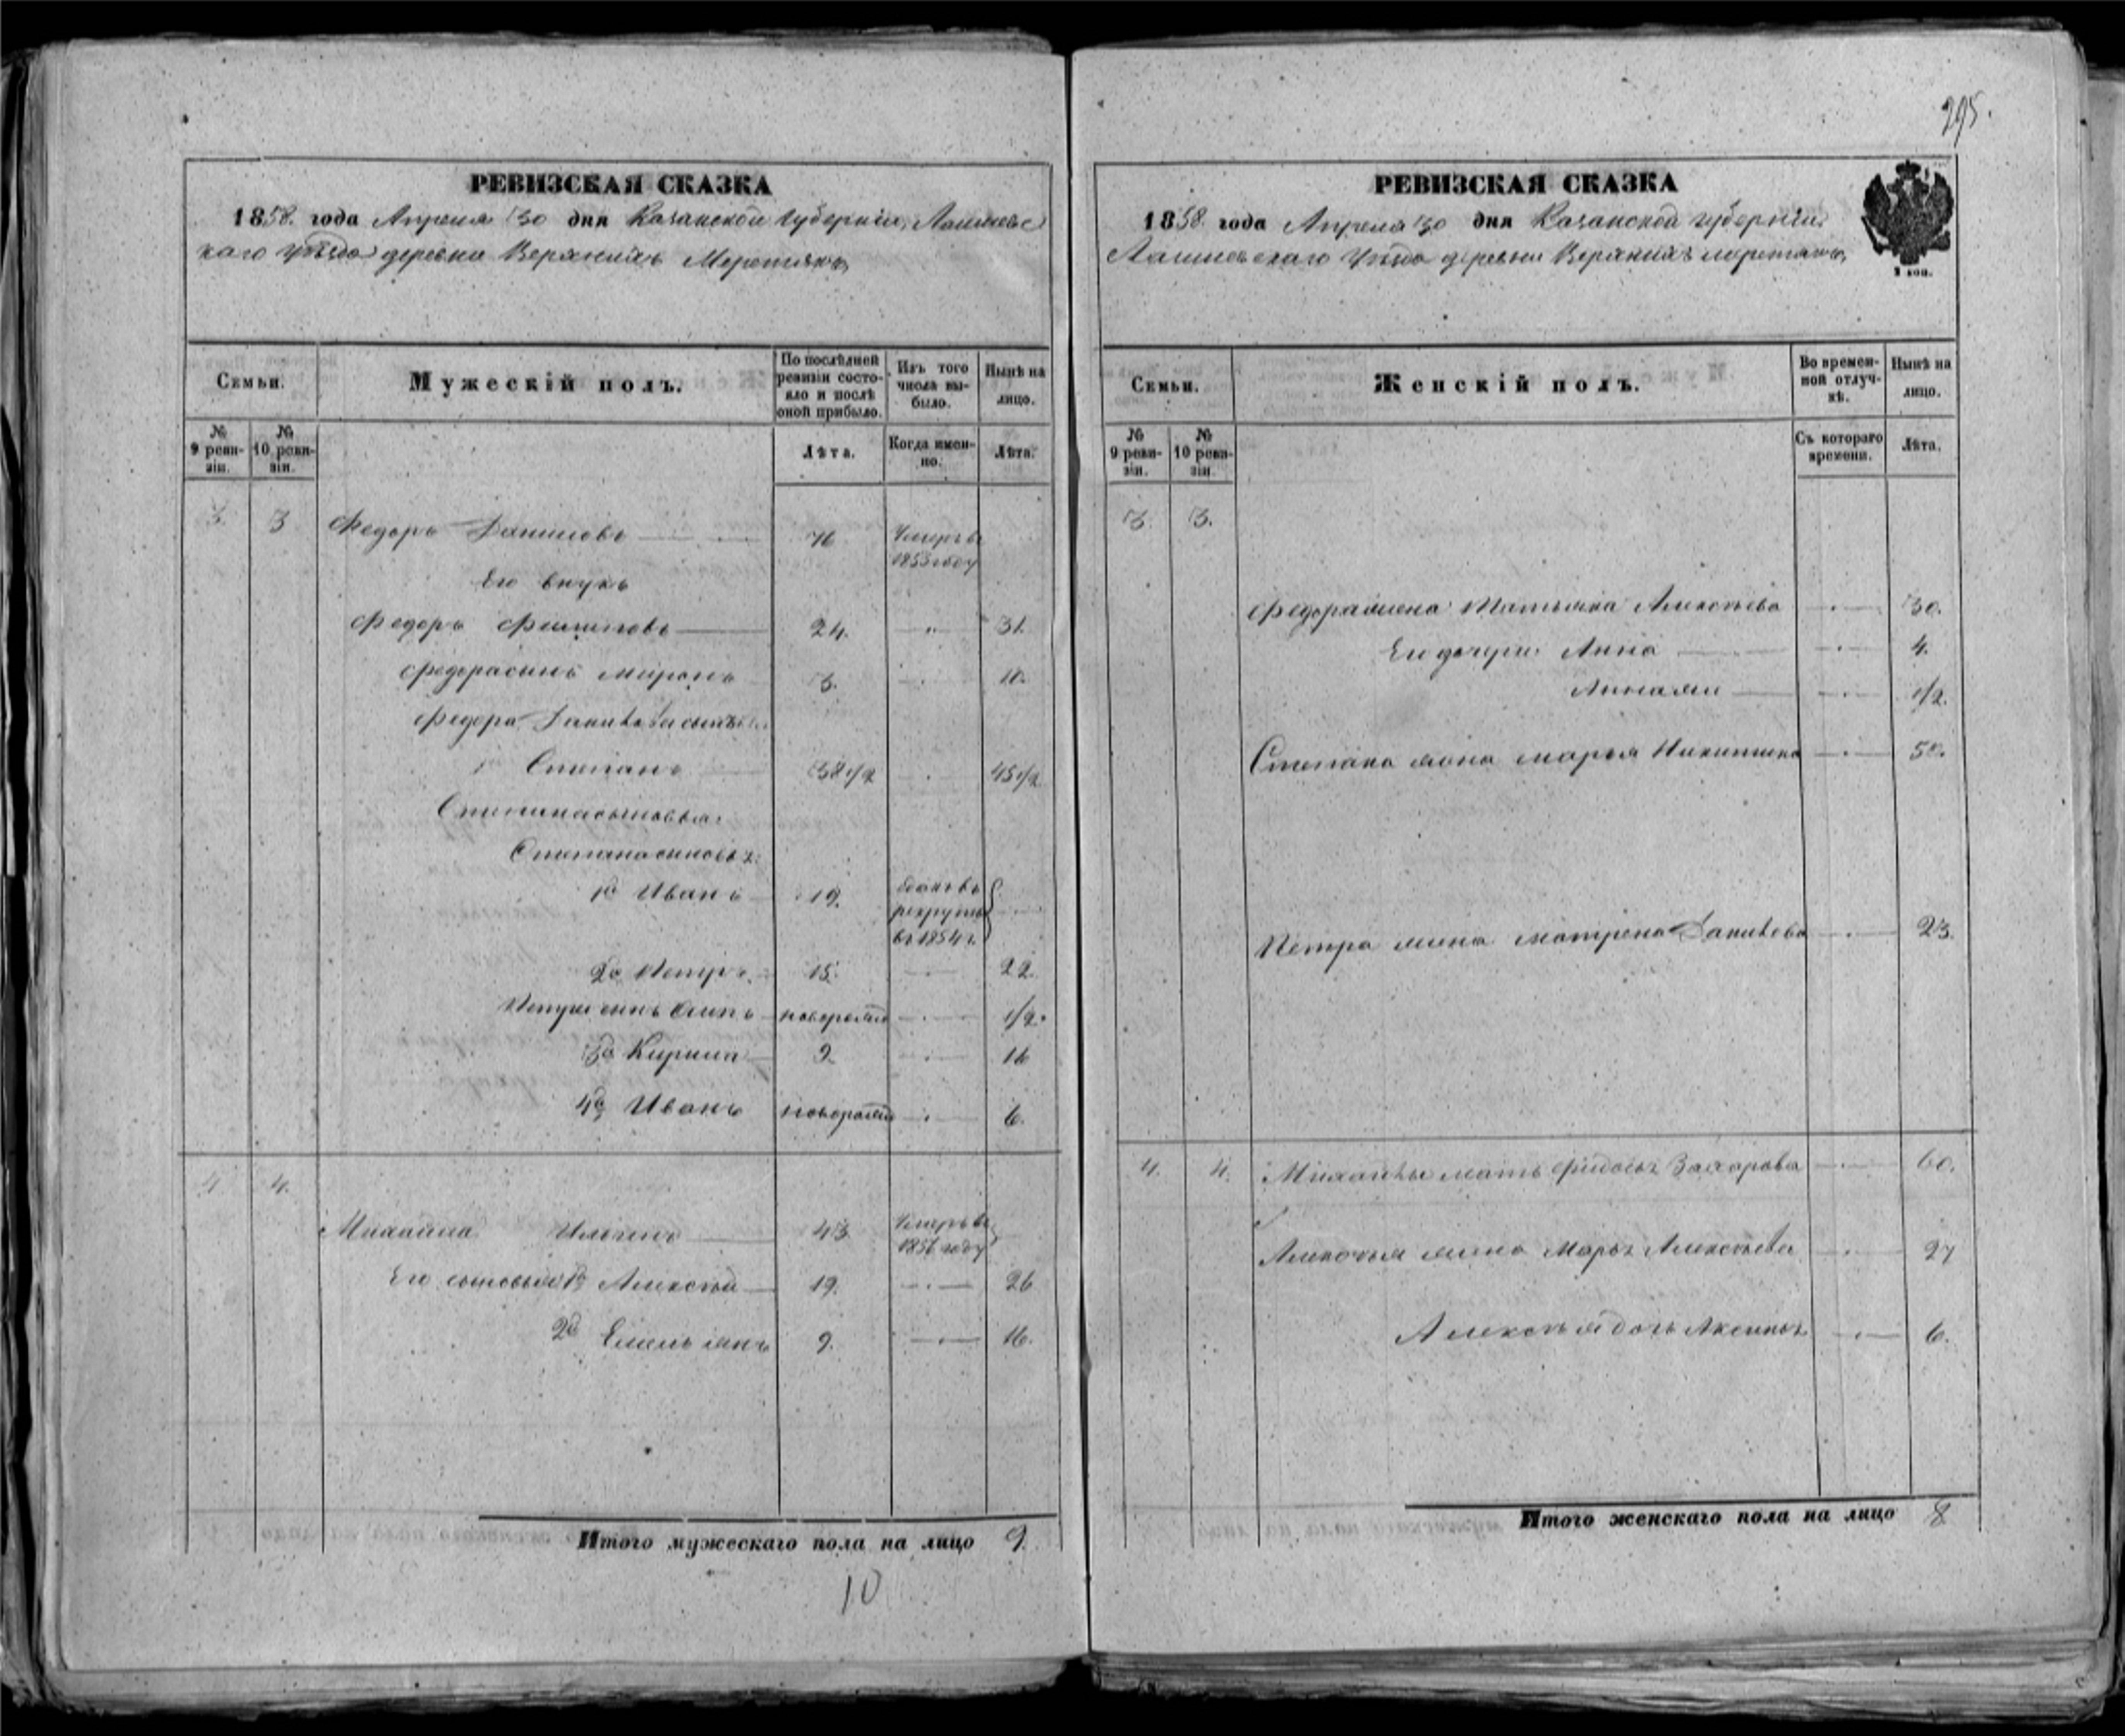 295.
РЕВИЗСКАЯ СКАЗКА
1858. года Апреля 30 дня Казанской губернии, Лаишевс
каго уѣзда деревни Верхнихъ Меретякъ
Семьи.
Мужескій полъ.
По послѣдней ревизіи состояло и послѣ оной прибыло.
Изъ того числа выбыло.
Нынѣ на лицо.
№ 9 ревизіи.
№ 10 ревизіи.
Лѣта.
Когда именно.
Лѣта.
3. 3 Федоръ Даниловъ 76 Умеръ въ 1853 году
Его внукъ
Федоръ Филиповъ 24. 31.
Федора сынъ Миронъ 3. 10.
Федора Данилова сынъ
Степанъ 38 1/2 45 1/2
Степана сыновья:
Степана сыновья:
1й Иванъ 19. въ рекруты въ 1854 г.
2й Петръ 15. 22.
сынъ Осипъ новорожд 1/2.
3й Кирила 9. 16
4й Иванъ новорожд 6.
4 4.
Михаила Ильинъ 43 Умеръ въ 1856 году
Его сыновья 1й Алексѣй 19. 26
2й Емельянъ 9. 16.
Итого мужескаго пола на лицо 9.
10
РЕВИЗСКАЯ СКАЗКА
1858. года Апреля 30 дня Казанской губернии
Лаишевскаго уѣзда деревни Верхнихъ меретякъ,
3 коп.
Семьи.
Женскій полъ.
Во временной отлучкѣ.
Нынѣ на лицо.
№ 9 ревизіи.
№ 10 ревизіи.
Съ котораго времени.
Лѣта.
3. 3.
Федора жена Татьяна Алексѣева 30.
Ея дочери Анна 4.
1/2.
Степана жена марья Никитина 50.
Петра жена матрена Данилова 23.
4. 4. Михайлы мать Захарова 60.
Алексѣя жена Марья Алексѣева 27
Алексѣя дочь Аксинья 6.
Итого женскаго пола на лицо 8